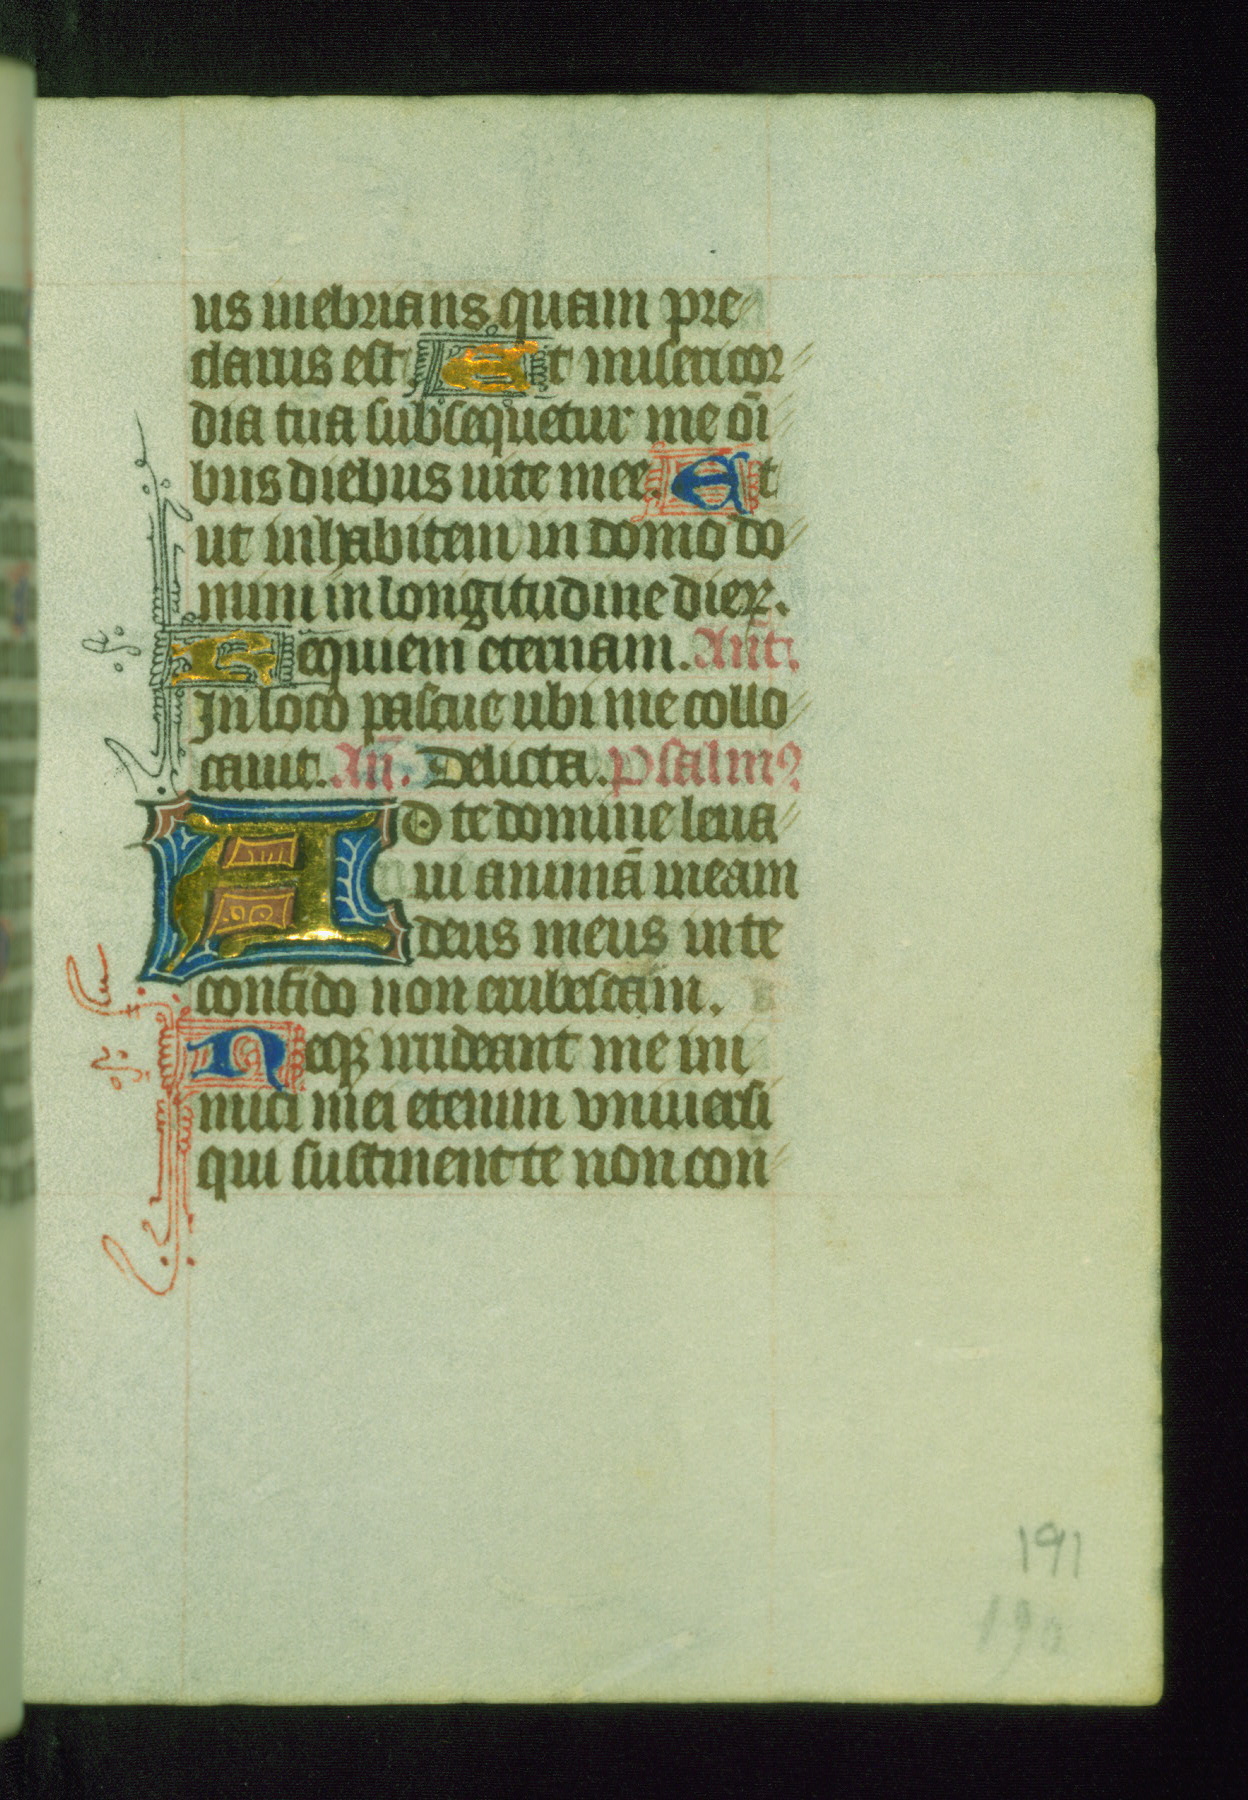 us inebrians quam pre
clarus est Et misericor
dia tua subsequetur me oı̄
bus diebus uite mee. Et
ut inhabitem in domo do
mini in longitudine dieꝝ.
Requiem eternam. Ant̄.
In loco pascue ubi me collo
cauit. An̄. Delicta. Psalmꝰ
AD te domine leua
ui animā meam
deus meus in te
confido non erubescam.
Neqꝫ irrideant me ini
mici mei etenim vniuersi
qui sustinent te non con
191
190